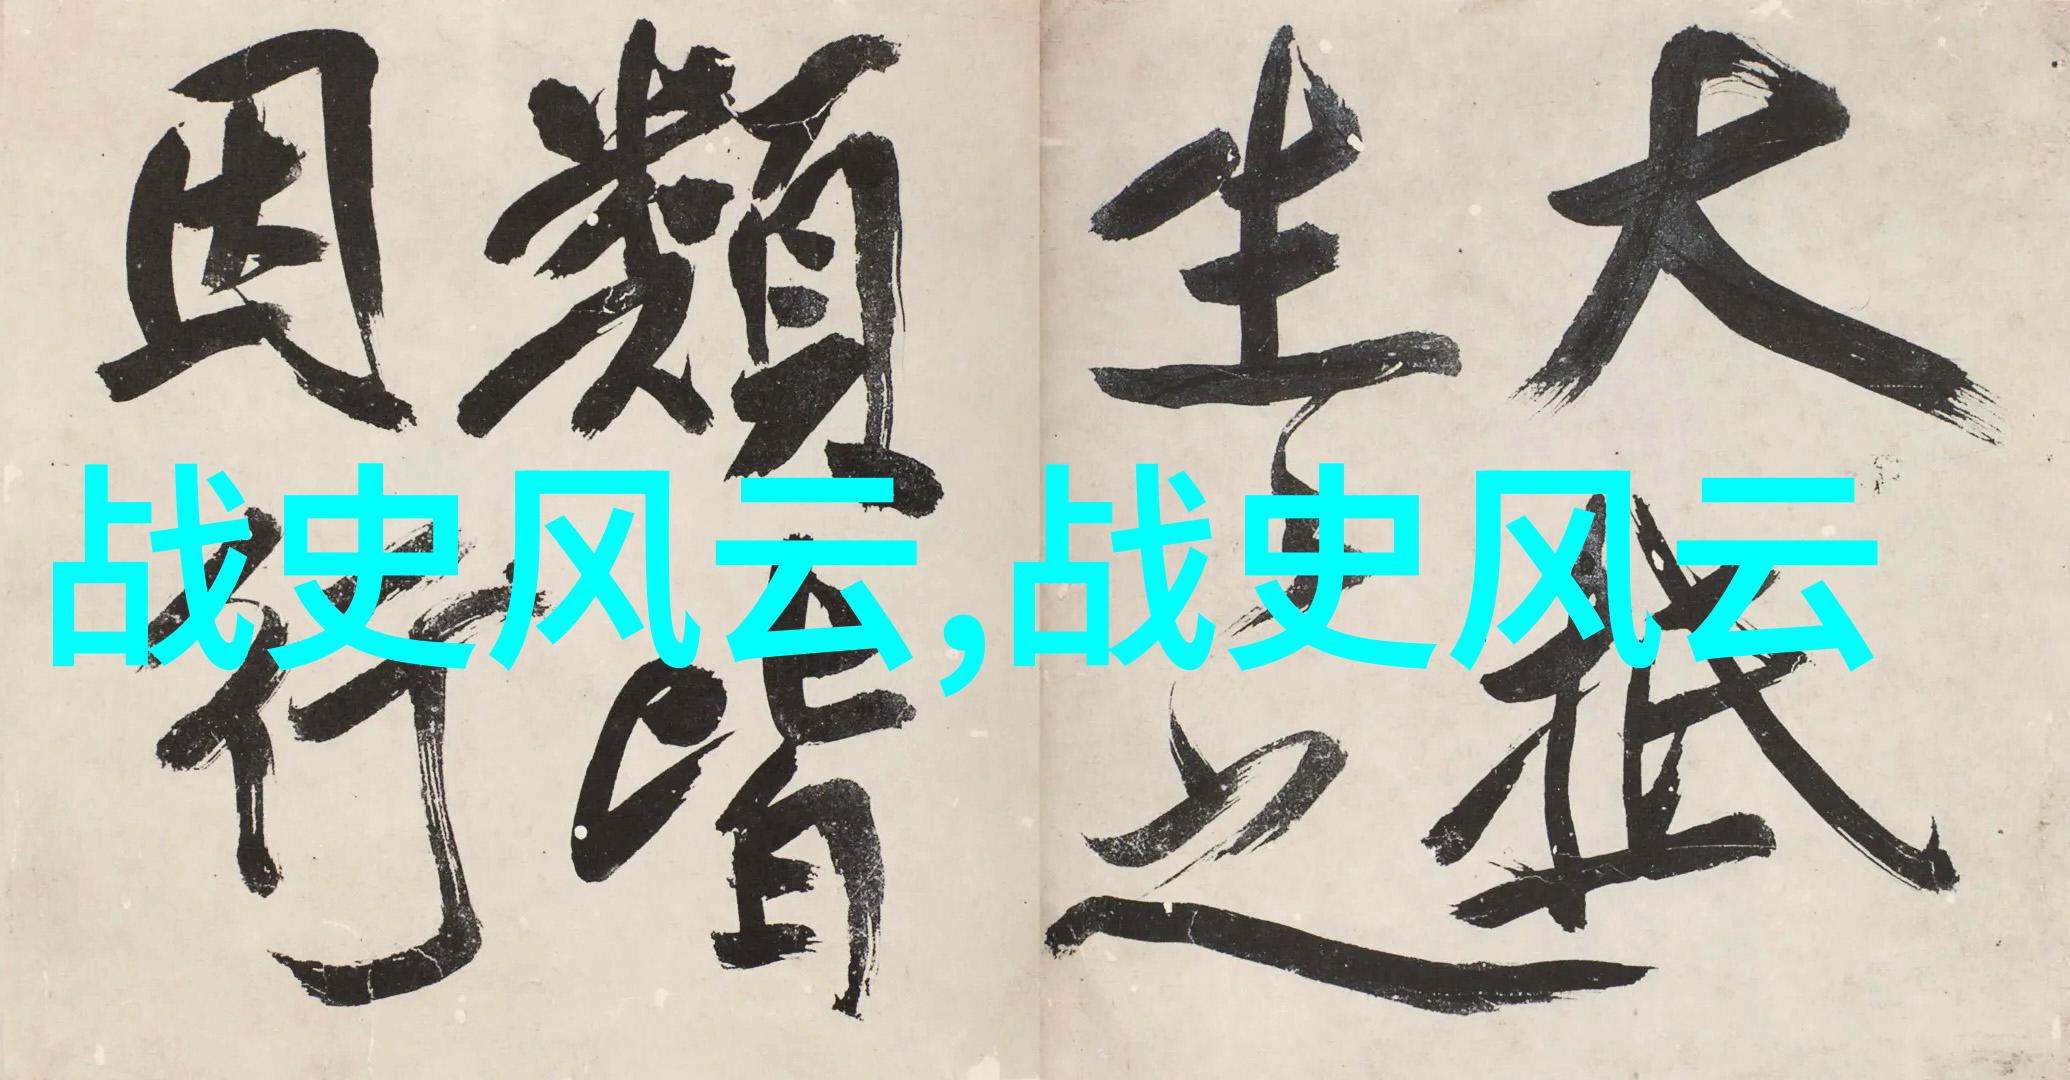 大抵
生〻之
類皆
因行
战史风云,战史风云